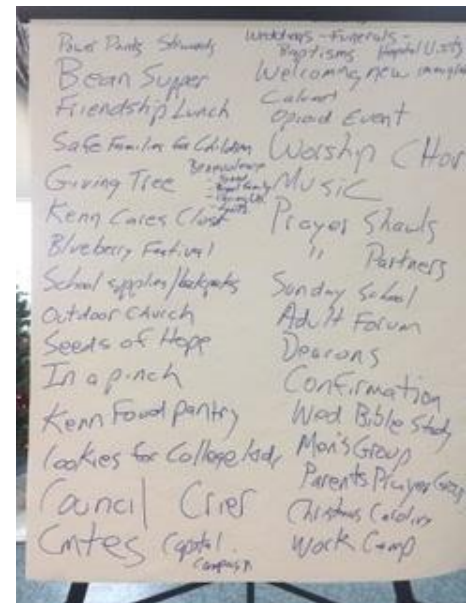 Power Points Stewards
Bean Supper
Friendship Lunch
Safe Families for Children
Giving Tree
Kenn Cares Closet
Blueberry Festival
School supplies/backpacks
Outdoor Church
Seeds of Hope
In a pinch
Kenn Food Pantry
Cookies for College kids
Council Crier
Cmtes Capital
Campaign
Weddings - Funerals -
Baptisms Hospital Visits
Welcoming new
Cabinet
Opioid Event
Worship Choir
Music
Prayer Shawls
" Partners
Sunday School
Adult Forum
Deacons
Confirmation
Wed Bible Study
Men's Group
Parents Prayer Group
Christmas Caroling
Work Camp